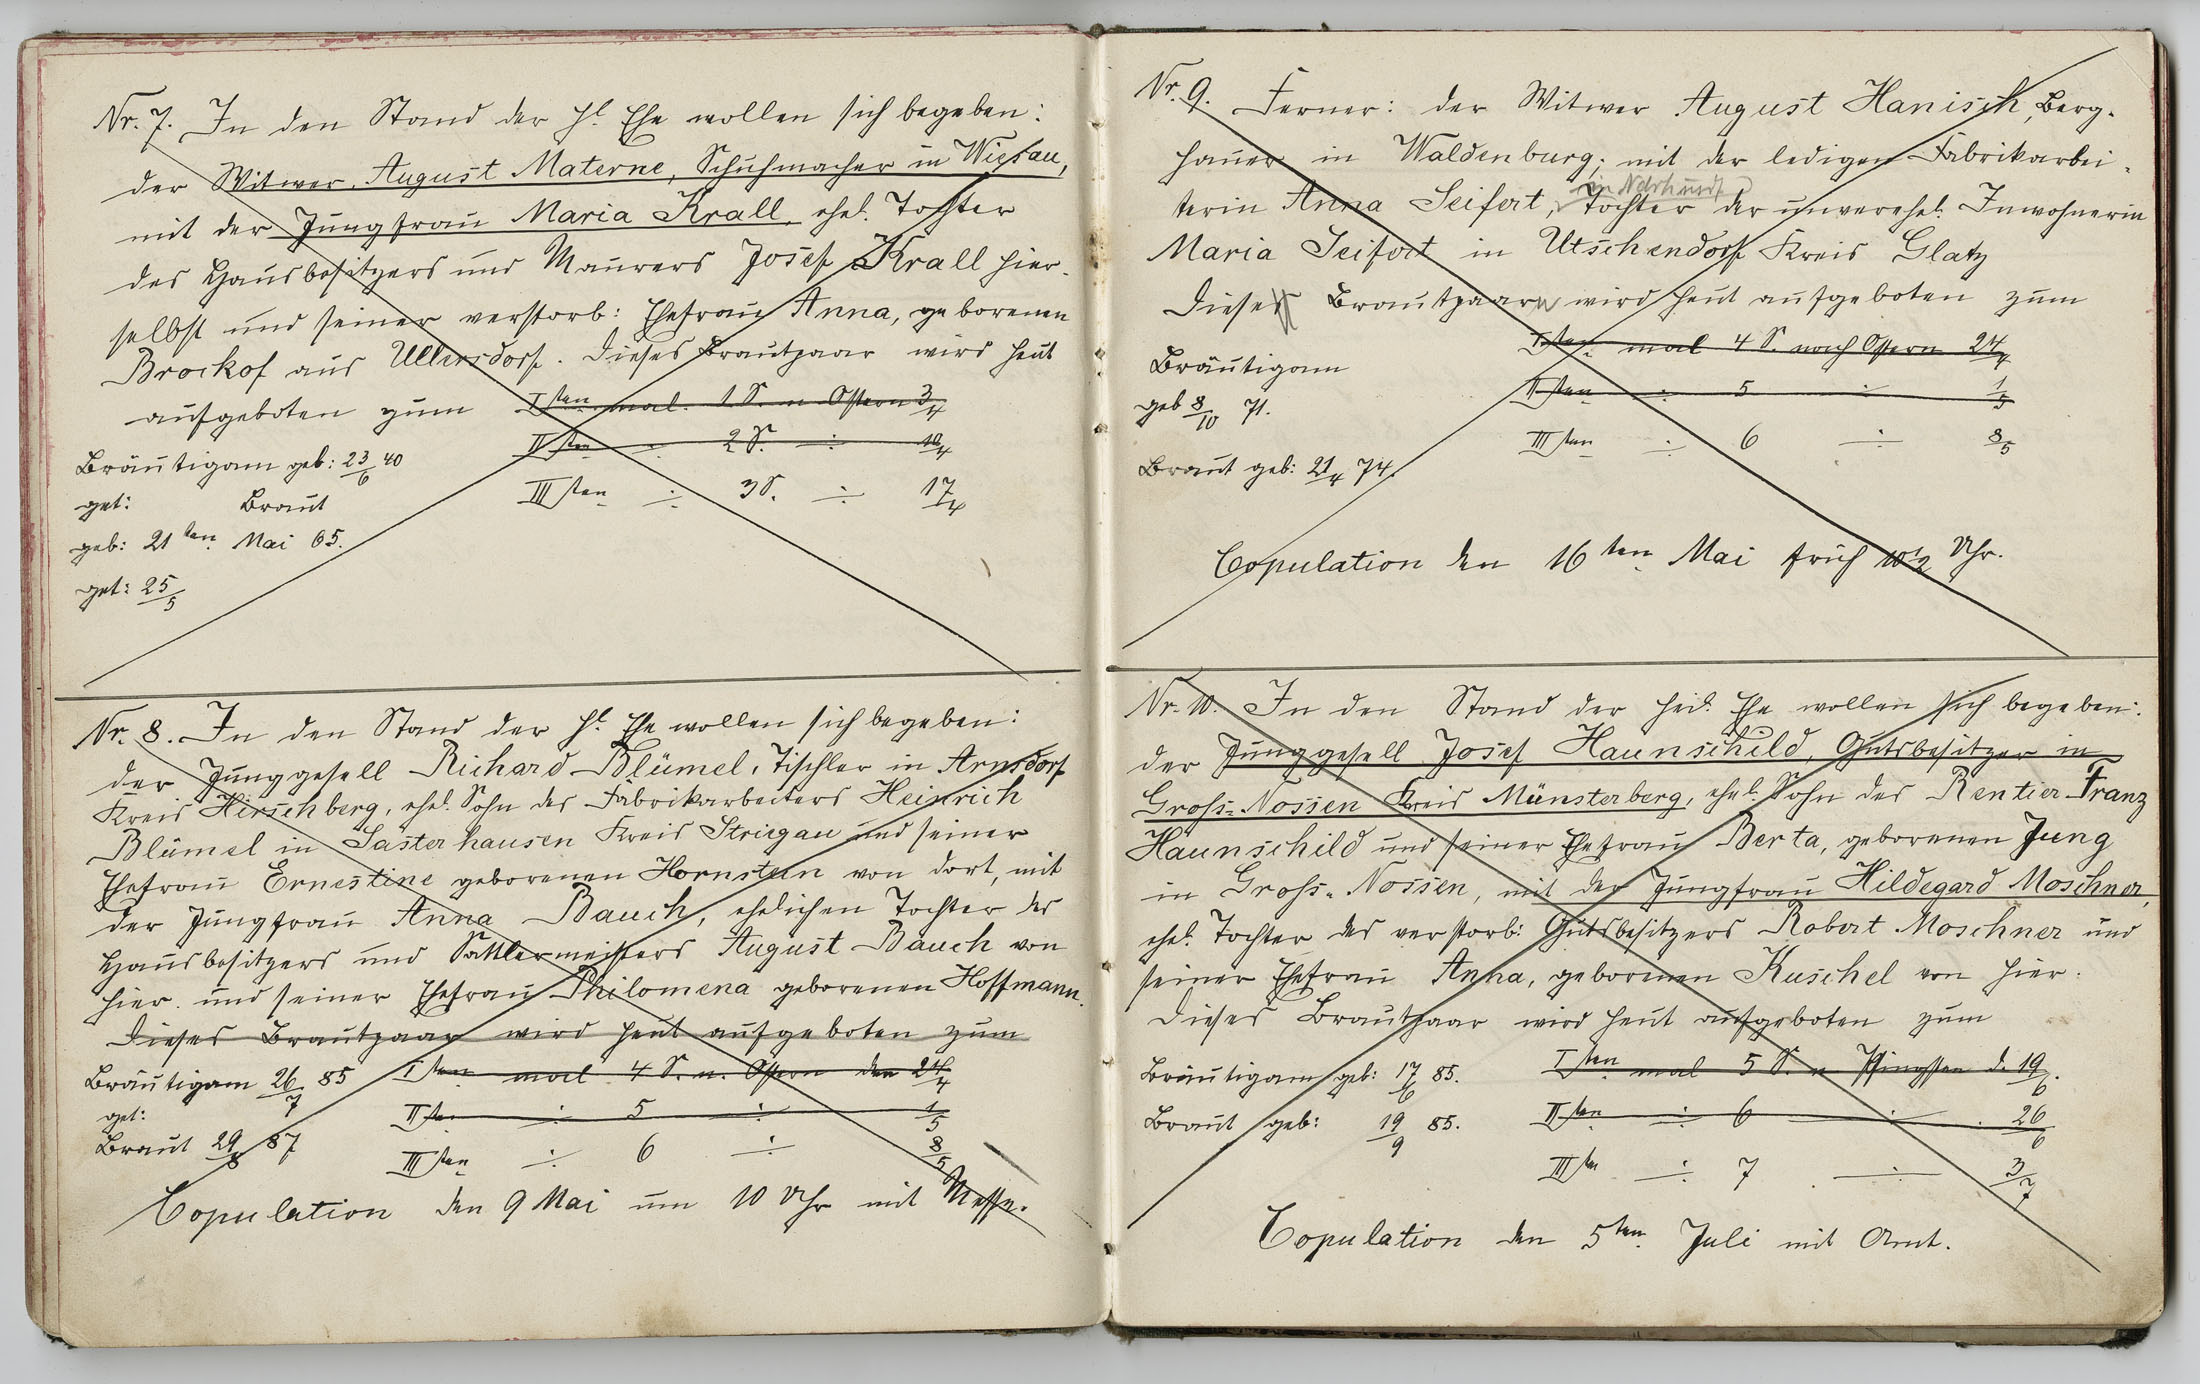 Nr. 7. In den Stand der hl. Ehe wollen sich begeben:
der Witwer August Materne, Schuhmacher in Wiesau,
mit der Jungfrau Maria Krall, ehel. Tochter
des Hausbesitzers und Maurers Josef Krall hier-
selbst und seiner verstorb: Ehefrau Anna, geborenen
Brockof aus Ullersdorf. Dieses Brautpaar wird heut
aufgeboten zum Iten mal. 1 S. n. Ostern 3/4
IIten ÷ 2 S. ÷ 10/4
IIIten ÷ 3 S. ÷ 17/4
Bräutigam geb: 23/6 40
get: Braut
geb: 21ten Mai 65.
get: 25/5
Nr. 8. In den Stand der hl. Ehe wollen sich begeben:
der Junggesell Richard Blümel, Tischler in Arnsdorf
Kreis Hirschberg, ehel. Sohn des Fabrikarbeiters Heinrich
Blümel in Sasterhausen Kreis Striegau und seiner
Ehefrau Ernestine geborenen Hornstein von dort, mit
der Jungfrau Anna Bauch, ehelichen Tochter des
Hausbesitzers und Sattlermeisters August Bauch von
hier und seiner Ehefrau Philomena geborenen Hoffmann.
Dieses Brautpaar wird heut aufgeboten zum
Iten mal 4 S. n. Ostern den 24/4
IIten ÷ 5 ÷ 1/5
IIIten ÷ 6 ÷ 8/5
Bräutigam 26/7 85
get:
Braut 29/8 87
Copulation den 9 Mai um 10 Uhr mit Messe.
Nr. 9. Ferner: der Witwer August Hanisch, Berg-
hauer in Waldenburg, mit der ledigen Fabrikarbei-
terin Anna Seifert, Tochter der unverehel. Inwohnerin
Maria Seifert in Utschendorf Kreis Glatz
Dieses Brautpaar wird heut aufgeboten zum
Iten mal 4 S. nach Ostern 24/4
IIten ÷ 5 ÷ 1/5
IIIten ÷ 6 ÷ 8/5
Bräutigam
geb 8/10 71.
Braut geb: 21/4 74.
Copulation den 16ten Mai früh 10 1/2 Uhr.
Nr. 10. In den Stand der heil. Ehe wollen sich begeben:
der Junggesell Josef Haunschild, Gutsbesitzer in
Gross-Nossen Kreis Münsterberg, ehel. Sohn des Rentier Franz
Haunschild und seiner Ehefrau Berta, geborenen Jung
in Gross-Nossen, mit der Jungfrau Hildegard Moschner,
ehel. Tochter des verstorb: Gutsbesitzers Robert Moschner und
seiner Ehefrau Anna, geborenen Kuschel von hier.
Dieses Brautpaar wird heut aufgeboten zum
Iten mal 5 S. n Pfingsten d. 19/6.
IIten ÷ 6 ÷ 26/6
IIIten ÷ 7 ÷ 3/7
Bräutigam geb: 17/6 85.
Braut geb: 19/9 85.
Copulation den 5ten Juli mit Amt.